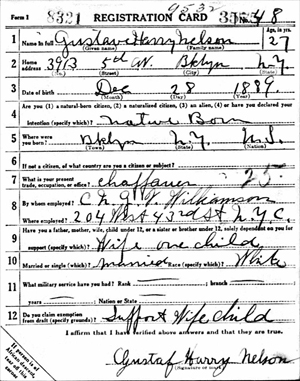 Form 1 8321 REGISTRATION CARD No. 48
1 Name in full Gustave Harry Nelson Age, in yrs. 27
(Given name) (Family name)
2 Home address 3913 5th Av. Bklyn N.Y.
(No.) (Street) (City) (State)
3 Date of birth Dec 28 1889
(Month) (Day) (Year)
4 Are you (1) a natural-born citizen, (2) a naturalized citizen, (3) an alien, (4) or have you declared your
intention (specify which)? Native Born
5 Where were you born? Bklyn N.Y. U.S.
(Town) (State) (Nation)
6 If not a citizen, of what country are you a citizen or subject?
7 What is your present trade, occupation, or office? chaffauer 25
8 By whom employed? C. & G. Williamson
Where employed? 204 West 43rd St N.Y.C.
9 Have you a father, mother, wife, child under 12, or a sister or brother under 12, solely dependent on you for
support (specify which)? Wife one child
10 Married or single (which)? Married Race (specify which)? White
11 What military service have you had? Rank ; branch
years ; Nation or State
12 Do you claim exemption from draft (specify grounds)? Support Wife child
I affirm that I have verified above answers and that they are true.
Gustaf Harry Nelson
(Signature or mark)
If person is of African descent, tear off this corner